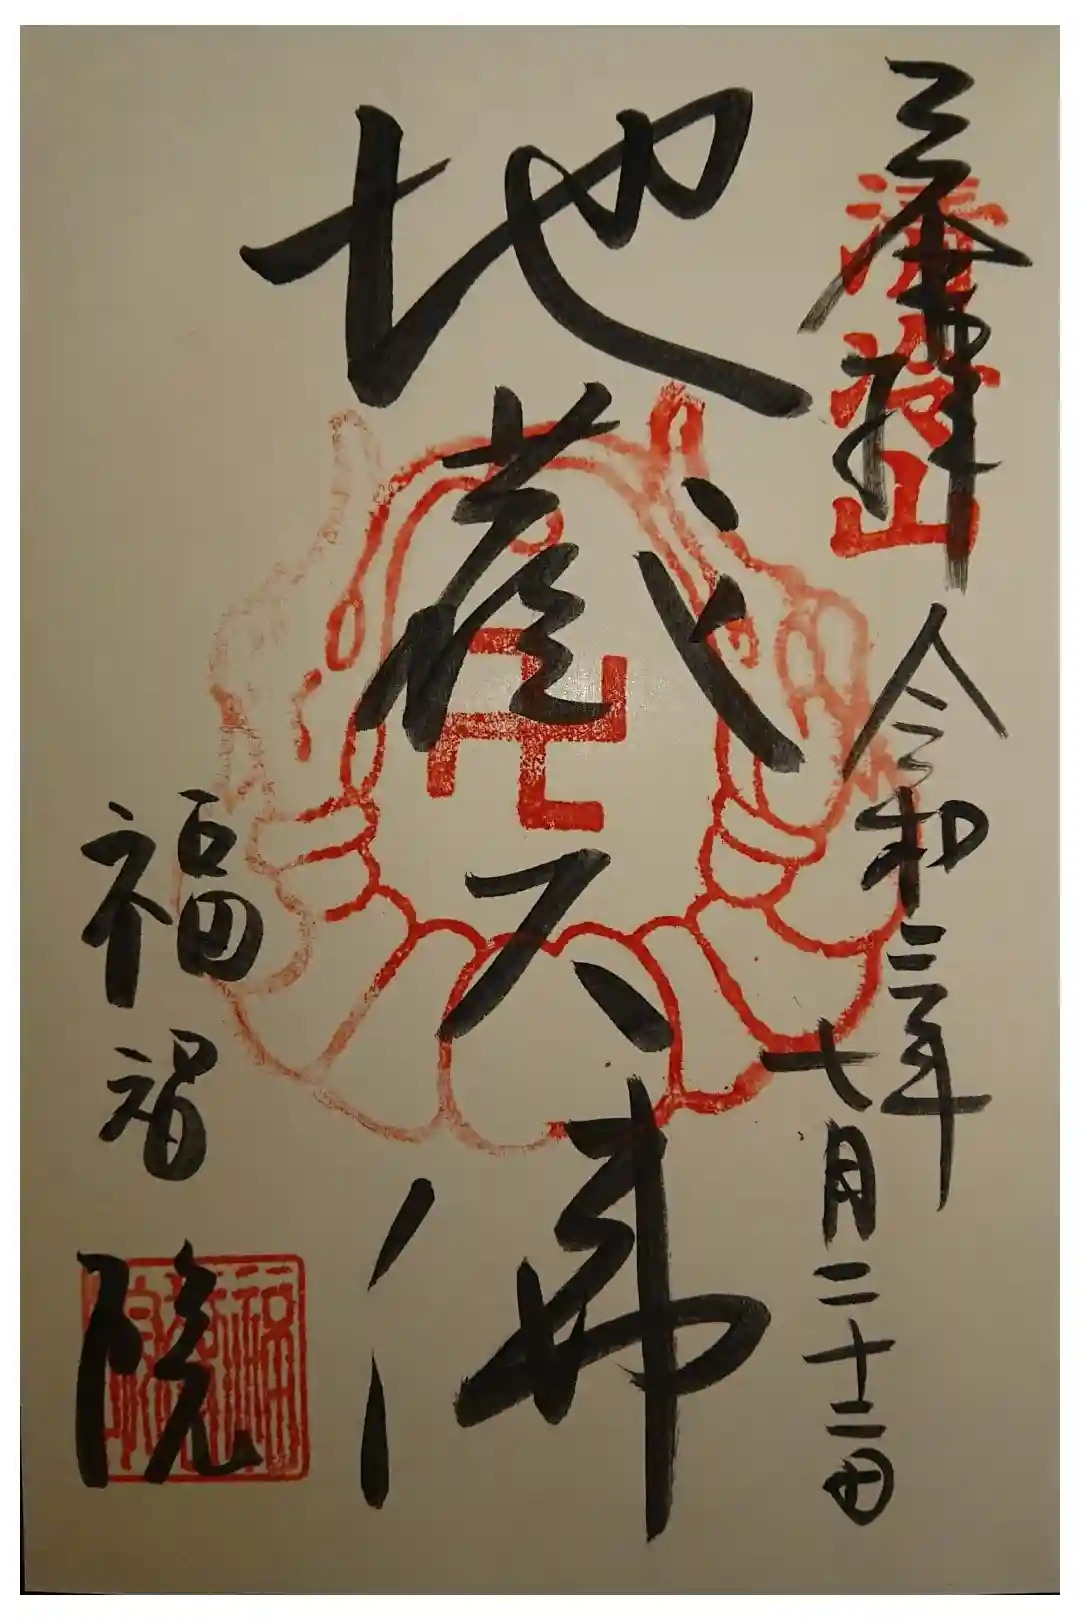 奉拝
令和三年七月二十二日
地蔵大佛
福智院